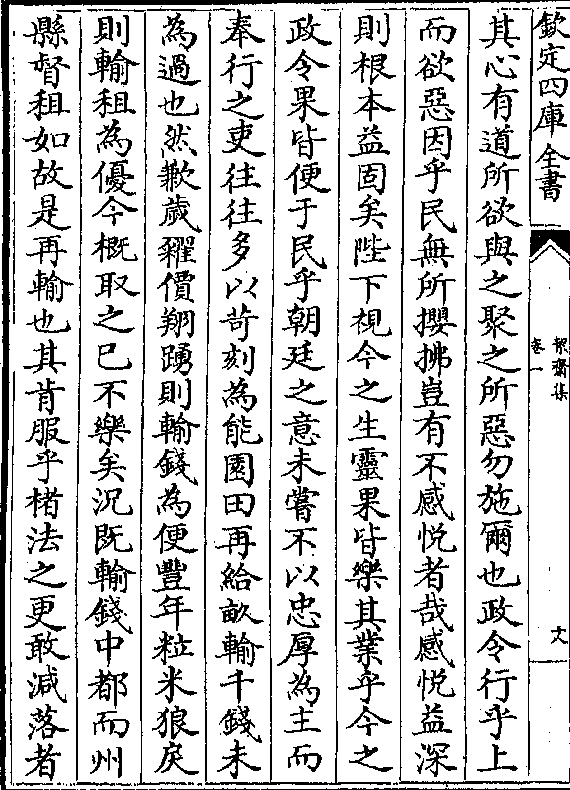 欽定四庫全書
絜齋集
卷一
其心有道所欲與之聚之所惡勿施爾也政令行乎上
而欲惡因乎民無所攖拂豈有不感悦者哉感悦益深
則根本益固矣陛下視今之生靈果皆樂其業乎今之
政令果皆便于民乎朝廷之意未嘗不以忠厚為主而
奉行之吏往往多以苛刻為能園田再給畝輸千錢未
為過也然歉歲糴價翔踴則輸錢為便豐年粒米狼戾
則輸租為優今概取之已不樂矣況既輸錢中都而州
縣督租如故是再輸也其肯服乎楮法之更敢減落者